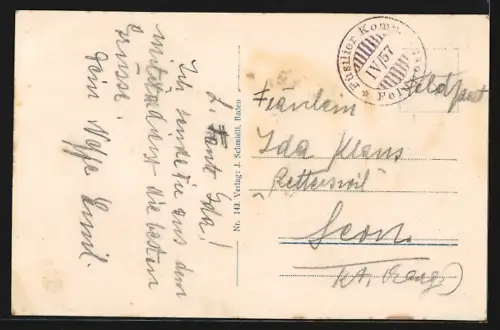 L. Tante Ida!
Ich sende Dir aus dem
Militärdienst die besten
Grüsse.
Dein Neffe Emil.
Nr. 143 Verlag: J. Schmidli, Baden
Füsilier Komp.
IV/57
Feldpost
Feldpost
Fräulein
Ida Klaus
"Retterswil"
Seon
Kt. Aarg.